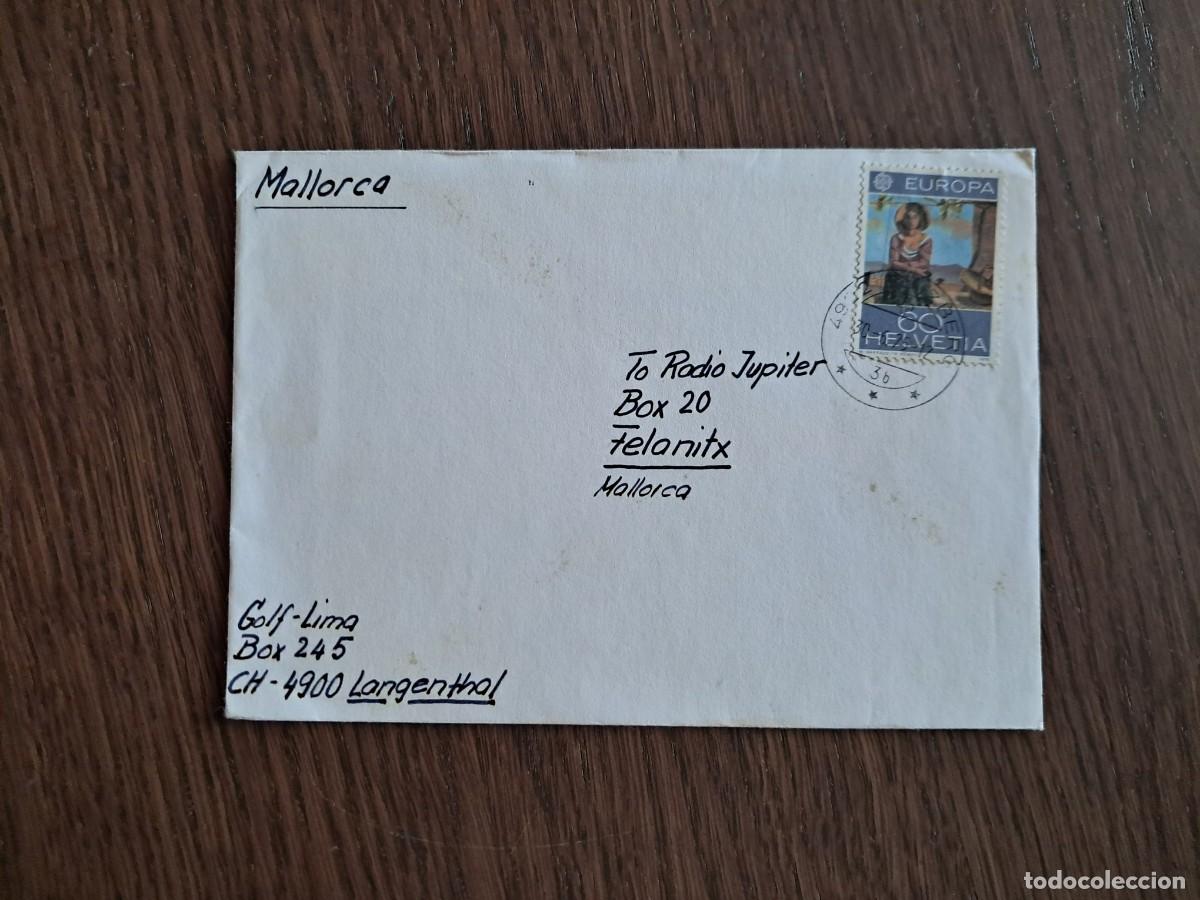 Mallorca
EUROPA
60
HELVETIA
3b
To Radio Jupiter
Box 20
Felanitx
Mallorca
Golf-Lima
Box 245
CH-4900 Langenthal
todocoleccion